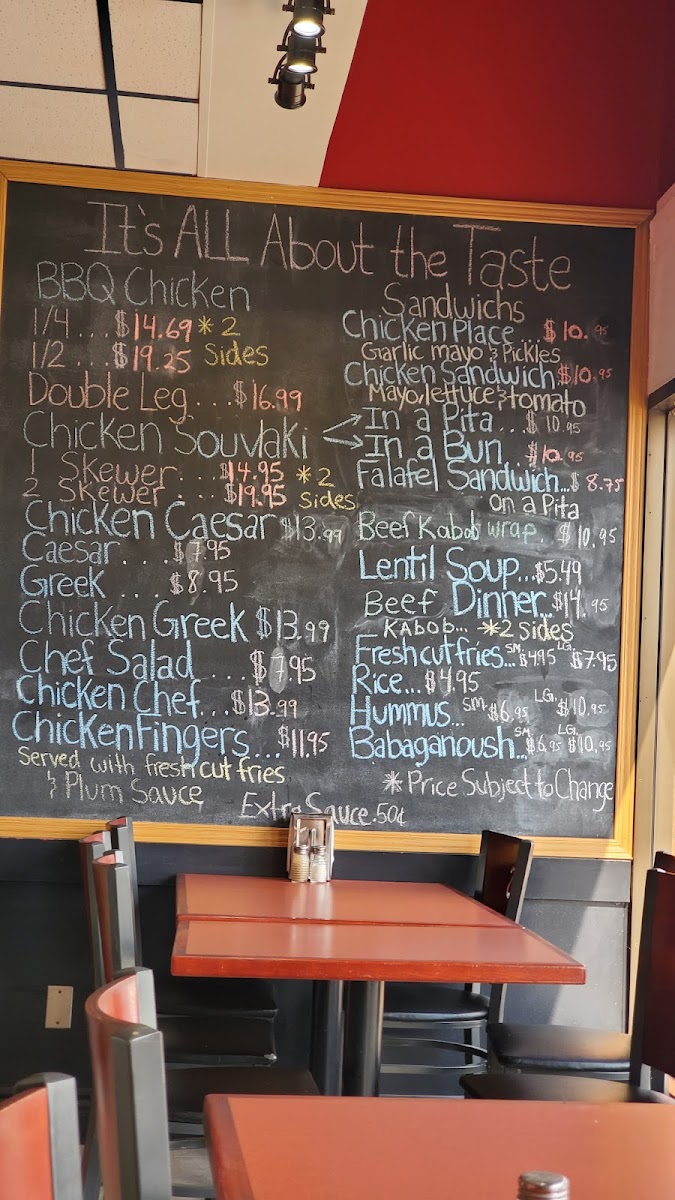 It's ALL About the Taste
BBQ Chicken
1/4 ... $14.69 * 2
1/2 ... $19.25 Sides
Double Leg ... $16.99
Chicken Souvlaki
In a Pita ... $10.95
In a Bun .. $10.95
1 Skewer ... $14.95 * 2
2 Skewer ... $19.95 Sides
Chicken Caesar $13.99
Caesar .... $7.95
Greek .... $8.95
Chicken Greek $13.99
Chef Salad .... $7.95
Chicken Chef... $13.99
Chicken Fingers... $11.95
Served with fresh cut fries
& Plum Sauce
Sandwichs
Chicken Place $10.95
Garlic mayo & Pickles
Chicken Sandwich $10.95
Mayo, lettuce & tomato
Falafel Sandwich... $8.75
on a Pita
Beef Kabob wrap. $10.95
Lentil Soup... $5.49
Beef Dinner... $14.95
KABOB... *2 sides
Fresh cut fries... SM. $4.95 LG. $7.95
Rice... $4.95
Hummus... SM. $6.95 LG. $10.95
Babaganoush... SM $6.95 LG. $10.95
* Price Subject to Change
Extra Sauce .50¢